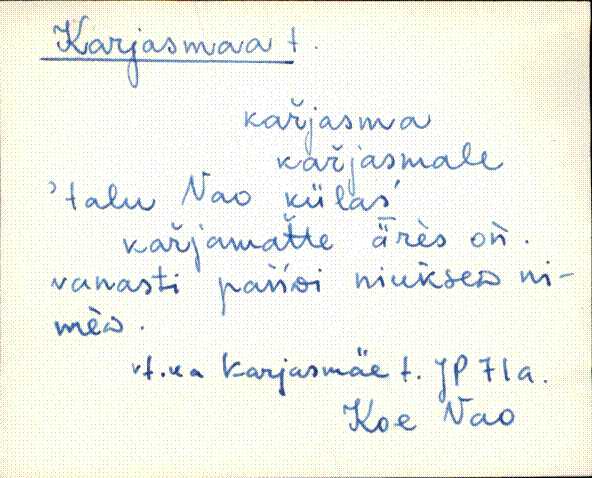 Karjasmaa t.
kařjasma
kařjasmale
'talu Nao külas'
kařjamat̆te ǟrès oǹ.
vanasti pańńi niuksed ni-
mèd.
vt. ka Karjasmäe t. JP 71a.
Koe Nao